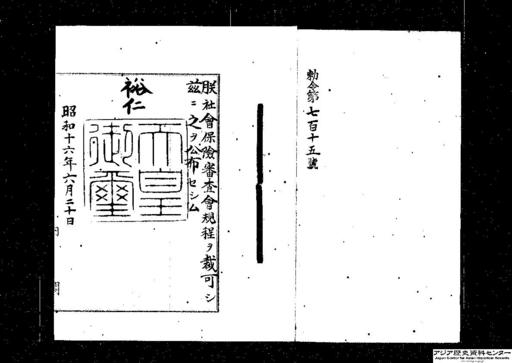 勅令第七百十五號
朕社會保險審査會規程ヲ裁可シ
茲ニ之ヲ公布セシム
裕仁
天皇御璽
昭和十六年六月二十日
内閣
アジア歴史資料センター
Japan Center for Asian Historical Records